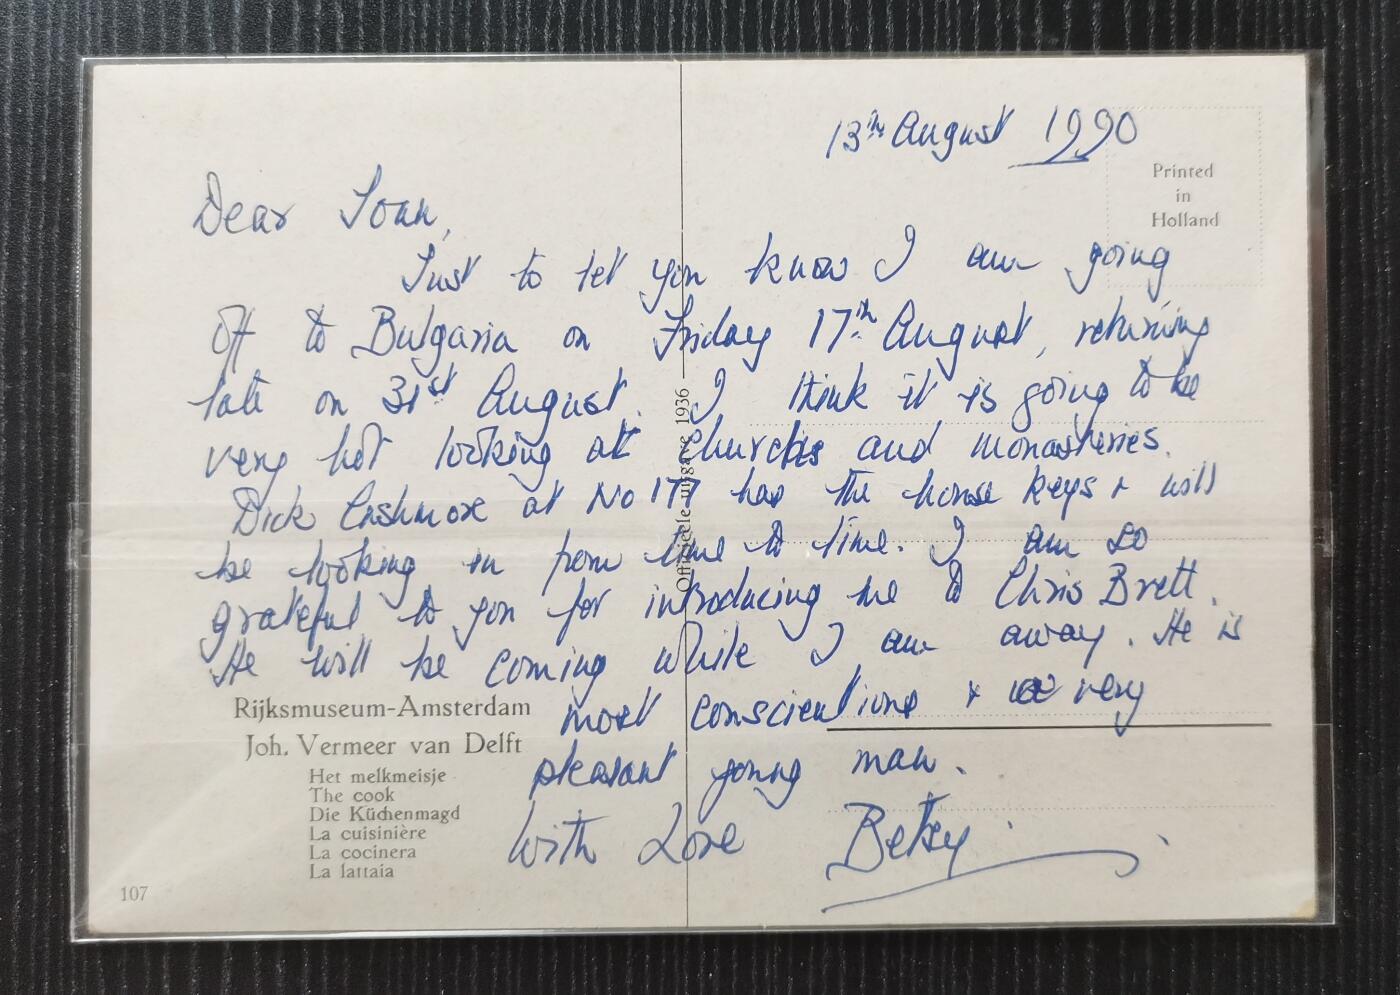 13th August 1990
Printed
in
Holland
Dear Joan,
Just to let you know I am going
off to Bulgaria on Friday 17th August, returning
late on 31st August. I think it is going to be
very hot looking at churches and monasteries.
Dick Cashmore at No 177 has the house keys & will
be looking in from time to time. I am so
grateful to you for introducing me to Chris Brett.
He will be coming while I am away. He is
most conscientious & very
pleasant young man.
With Love Betsy
Officieele uitgave 1936
Rijksmuseum-Amsterdam
Joh. Vermeer van Delft
Het melkmeisje
The cook
Die Küchenmagd
La cuisinière
La cocinera
La lattaia
107